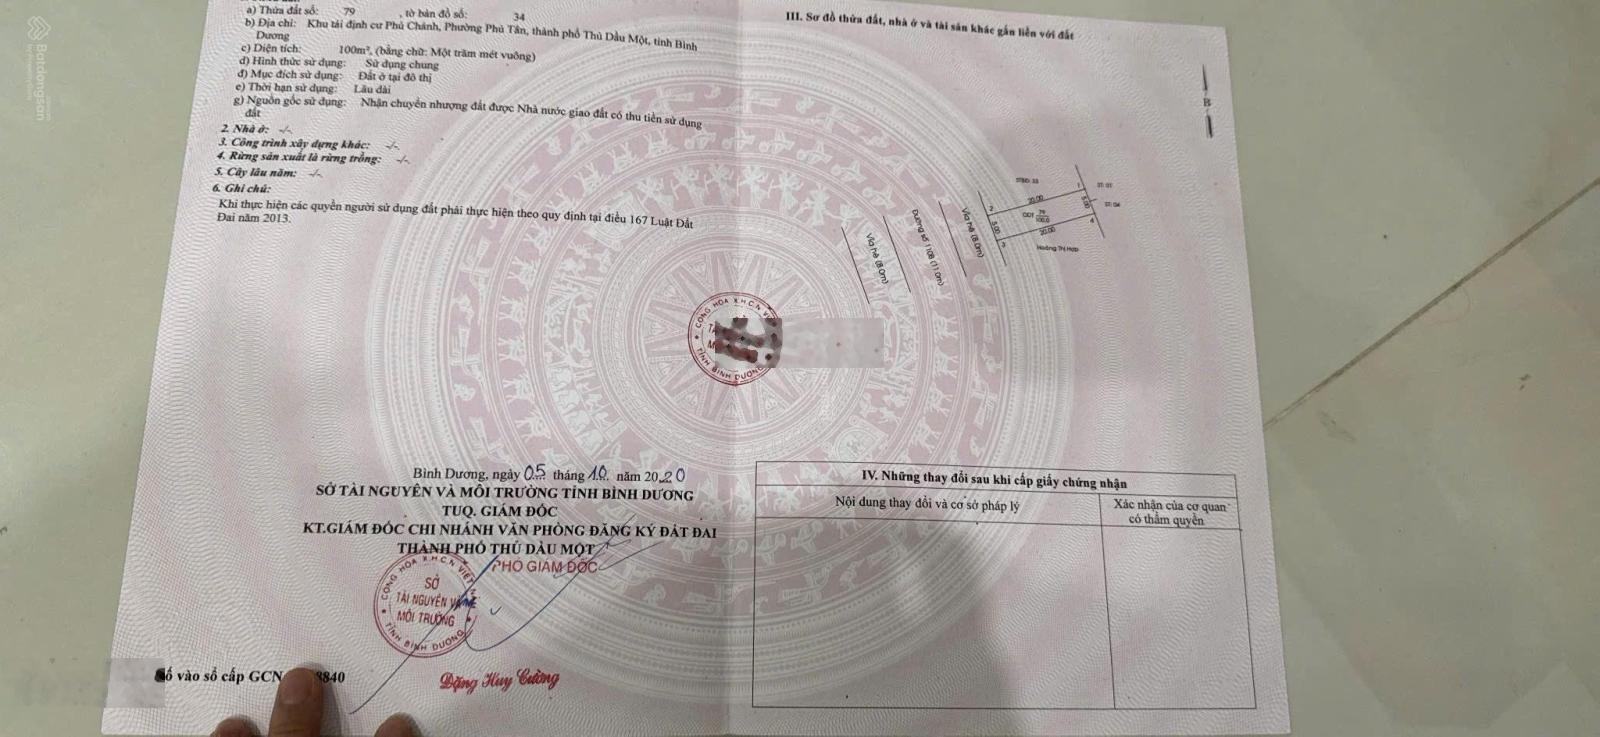 a) Thửa đất số: 79 , tờ bản đồ số: 34
b) Địa chỉ: Khu tái định cư Phú Chánh, Phường Phú Tân, thành phố Thủ Dầu Một, tỉnh Bình
Dương
c) Diện tích: 100m², (bằng chữ: Một trăm mét vuông)
d) Hình thức sử dụng: Sử dụng chung
đ) Mục đích sử dụng: Đất ở tại đô thị
e) Thời hạn sử dụng: Lâu dài
g) Nguồn gốc sử dụng: Nhận chuyển nhượng đất được Nhà nước giao đất có thu tiền sử dụng
đất
2. Nhà ở: -/-
3. Công trình xây dựng khác: -/-
4. Rừng sản xuất là rừng trồng: -/-
5. Cây lâu năm: -/-
6. Ghi chú:
Khi thực hiện các quyền người sử dụng đất phải thực hiện theo quy định tại điều 167 Luật Đất
Đai năm 2013.
Bình Dương, ngày 05 tháng 10 năm 2020
SỞ TÀI NGUYÊN VÀ MÔI TRƯỜNG TỈNH BÌNH DƯƠNG
TUQ. GIÁM ĐỐC
KT.GIÁM ĐỐC CHI NHÁNH VĂN PHÒNG ĐĂNG KÝ ĐẤT ĐAI
THÀNH PHỐ THỦ DẦU MỘT
PHÓ GIÁM ĐỐC
CỘNG HÒA X.H.C.N VIỆT
SỞ
TÀI NGUYÊN VÀ
MÔI TRƯỜNG
TỈNH BÌNH DƯƠNG
Đặng Huy Cường
Số vào sổ cấp GCN 8840
III. Sơ đồ thửa đất, nhà ở và tài sản khác gắn liền với đất
B
1
20.00
2
5.00
ODT 79
100.0
5.00
3
20.00
4
Hoàng Thị Hợp
Vỉa hè (8.0m)
Đường số 110B (11.0m)
Vỉa hè (8.0m)
CỘNG HÒA X.H.C.N VIỆT
TỈNH BÌNH DƯƠNG
IV. Những thay đổi sau khi cấp giấy chứng nhận
Nội dung thay đổi và cơ sở pháp lý
Xác nhận của cơ quan
có thẩm quyền
Batdongsan